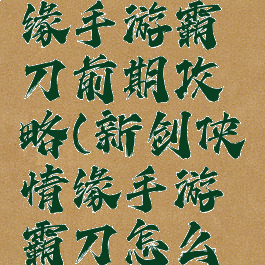 缘手游霸
刀前期攻
略(新剑侠
情缘手游
霸刀怎么